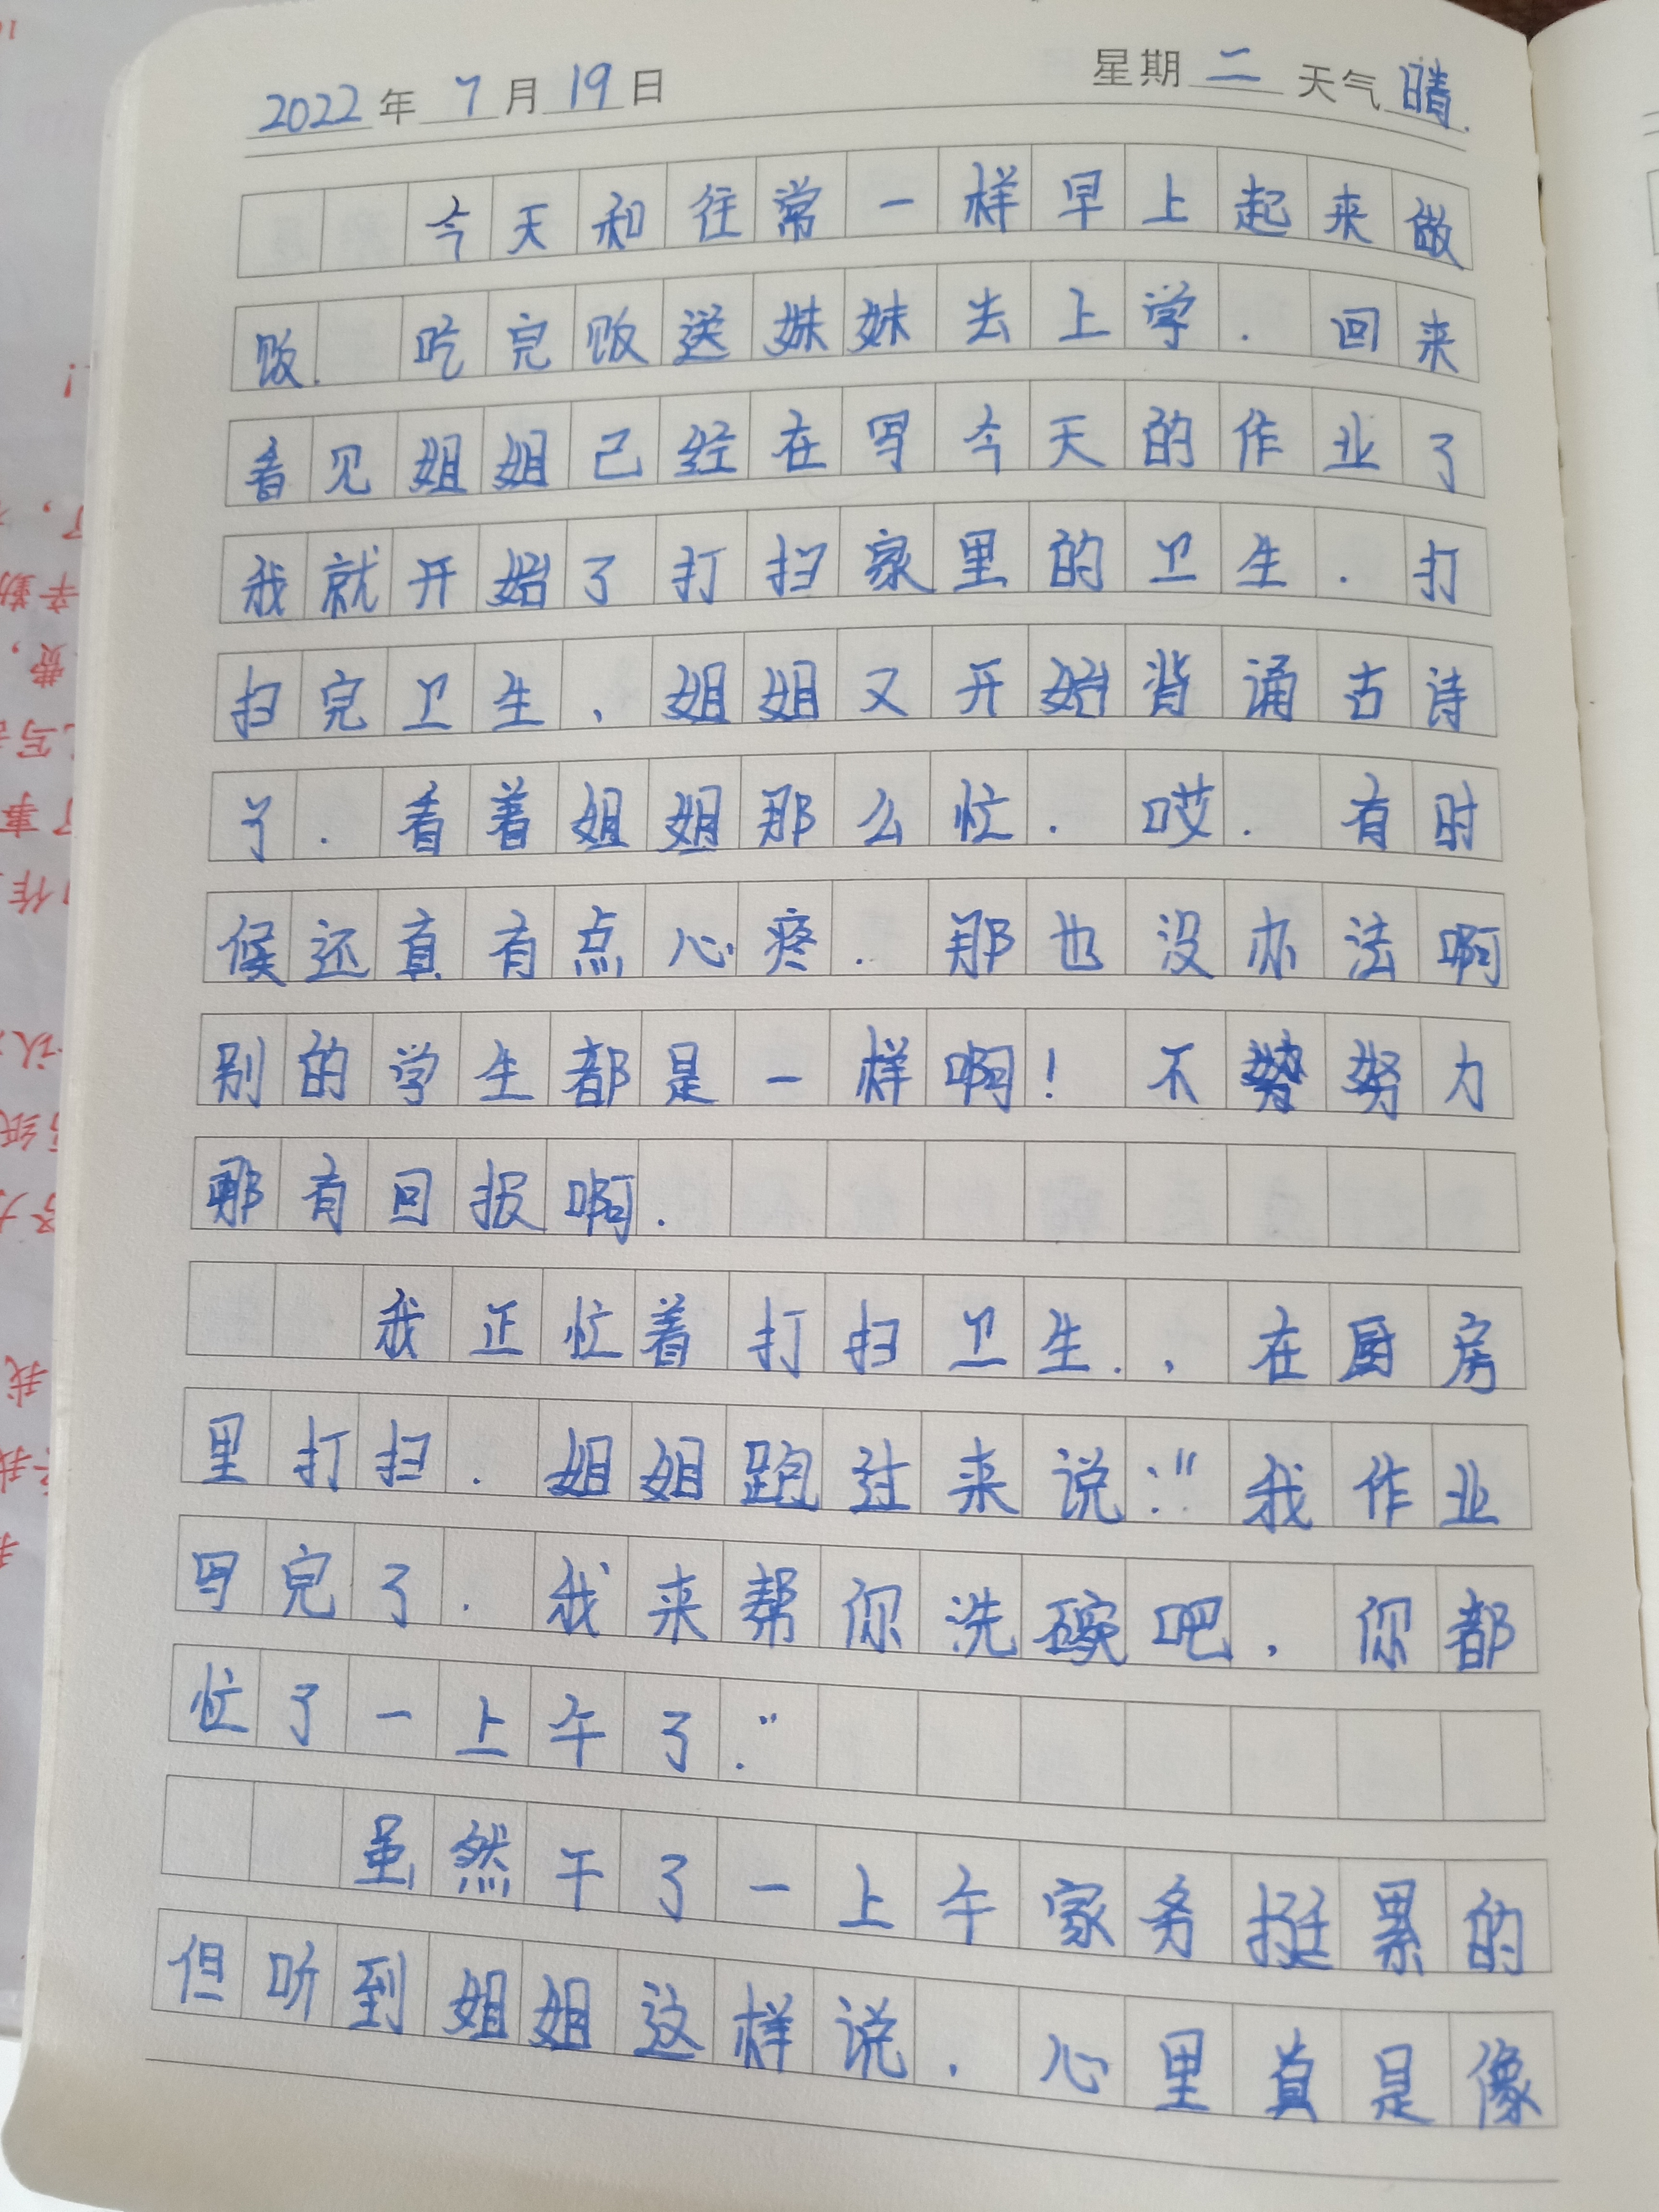 2022年 7月 19日 星期 二 天气 晴.
今天和往常一样早上起来做
饭. 吃完饭送妹妹去上学. 回来
看见姐姐己经在写今天的作业了
我就开始了打扫家里的卫生. 打
扫完卫生, 姐姐又开始背诵古诗
了. 看着姐姐那么忙. 哎. 有时
候还真有点心疼. 那也没办法啊
别的学生都是一样啊! 不努力
那有回报啊.
我正忙着打扫卫生., 在厨房
里打扫. 姐姐跑过来说:"我作业
写完了. 我来帮你洗碗吧, 你都
忙了一上午了."
虽然干了一上午家务挺累的
但听到姐姐这样说. 心里真是像